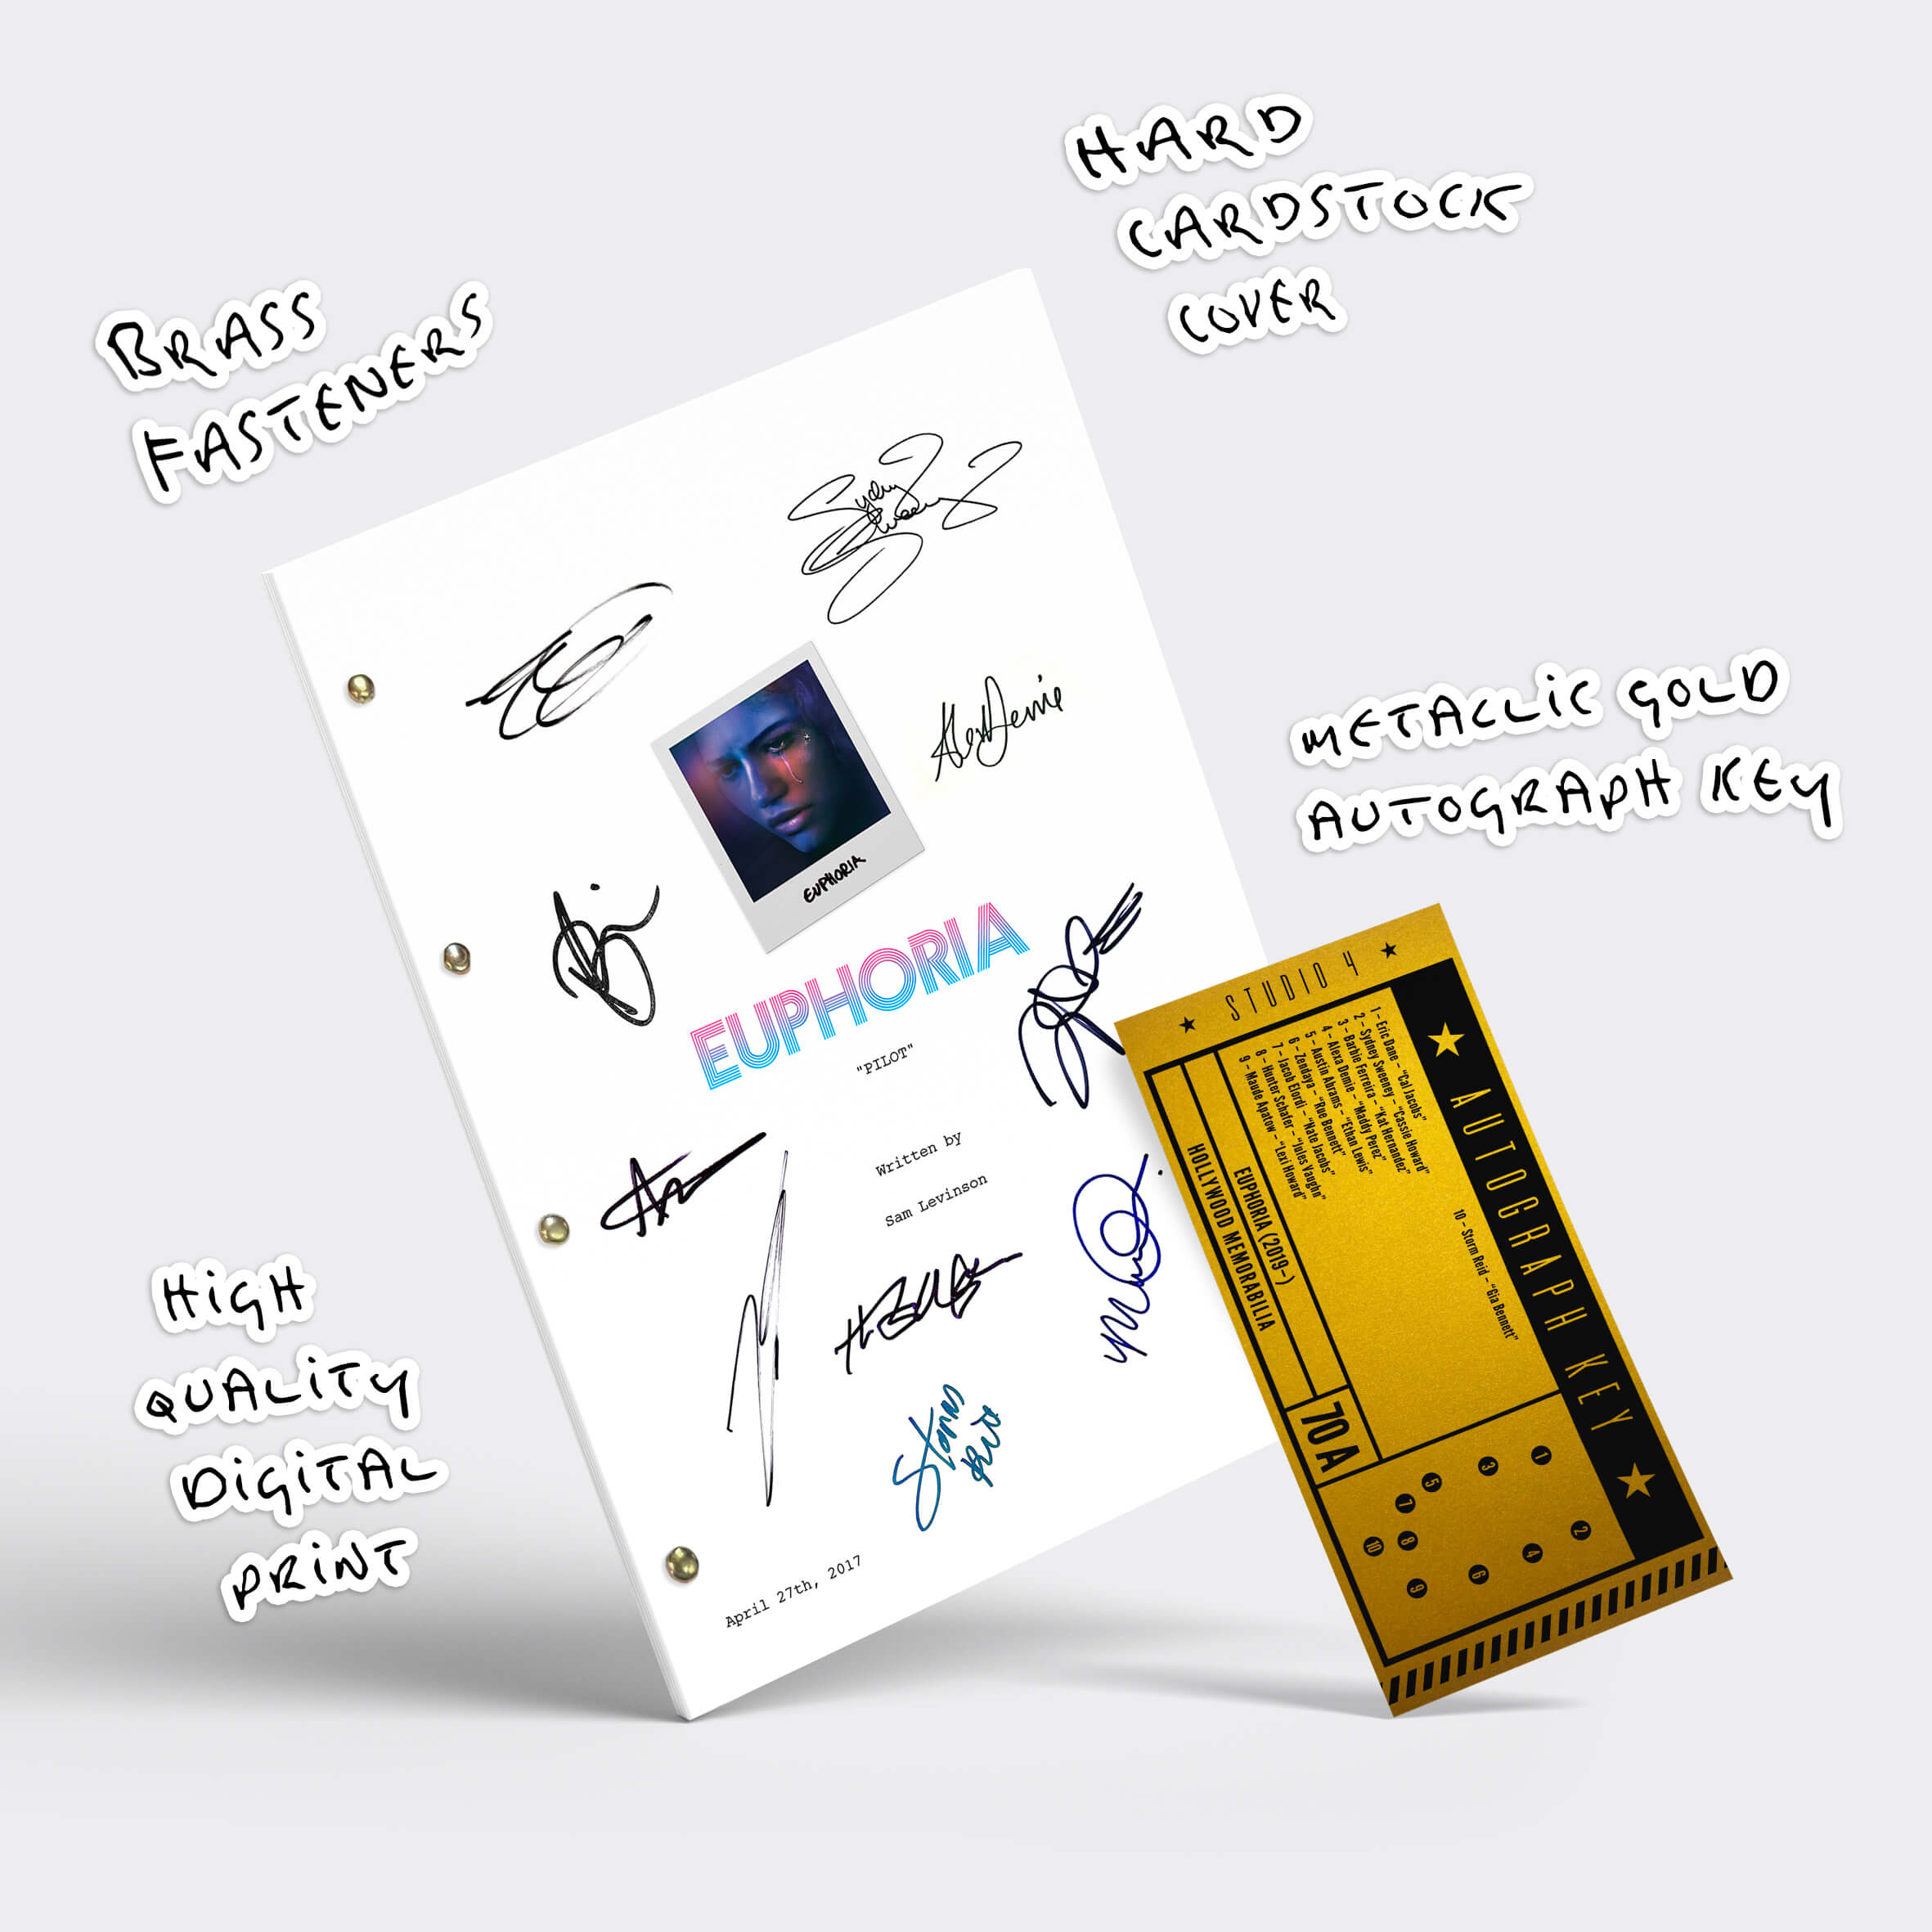 BRASS
FASTENERS
HARD
CARDSTOCK
COVER
METALLIC GOLD
AUTOGRAPH KEY
HIGH
QUALITY
DIGITAL
PRINT
Sydney
Sweeney
Alexa Demie
EUPHORIA
EUPHORIA
"PILOT"
Written by
Sam Levinson
Storm
Reid
April 27th, 2017
STUDIO 4
AUTOGRAPH KEY
1 - Eric Dane - "Cal Jacobs"
2 - Sydney Sweeney - "Cassie Howard"
3 - Barbie Ferreira - "Kat Hernandez"
4 - Alexa Demie - "Maddy Perez"
5 - Austin Abrams - "Ethan Lewis"
6 - Zendaya - "Rue Bennett"
7 - Jacob Elordi - "Nate Jacobs"
8 - Hunter Schafer - "Jules Vaughn"
9 - Maude Apatow - "Lexi Howard"
10 - Storm Reid - "Gia Bennett"
EUPHORIA (2019-)
HOLLYWOOD MEMORABILIA
70A
1
2
3
4
5
6
7
8
9
10